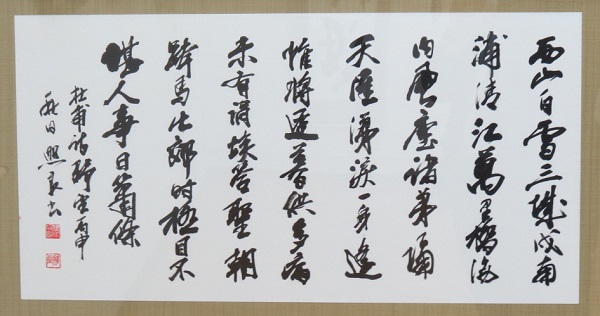 西山白雪三城戍南
浦清江萬里橋海
內風塵諸弟隔
天涯涕淚一身遙
惟將遲暮供多病
未有涓埃答聖朝
跨馬出郊時極目不
堪人事日蕭條
杜甫詩野望丙申
田良書